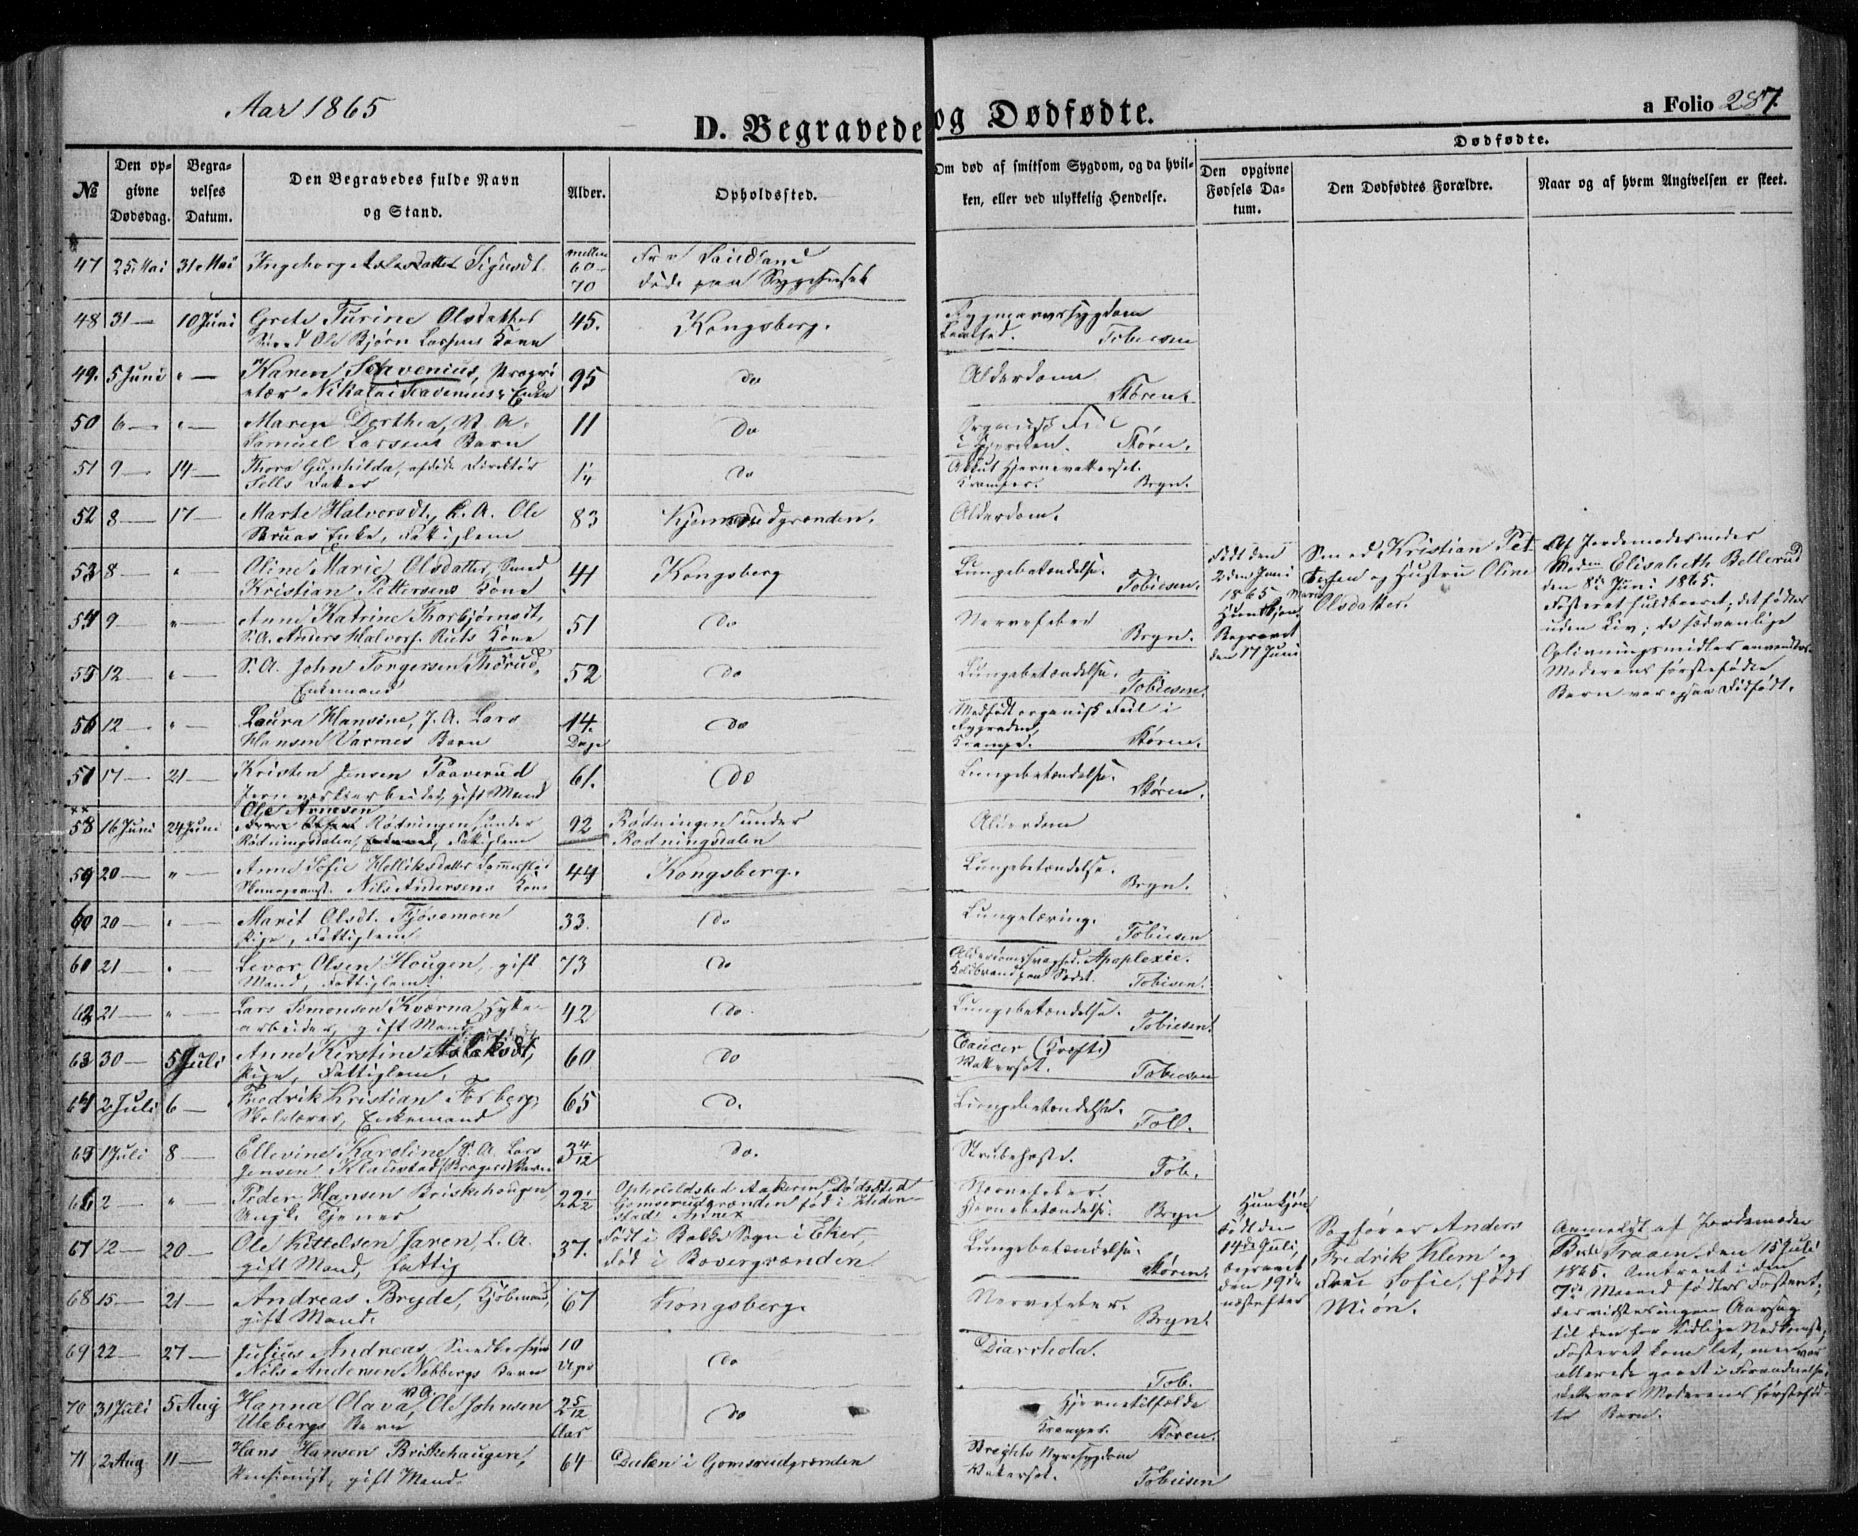 Aar 1865
D. Begravede og Dødfødte.
a Folio 287.
Dødfødte.
№
Den opgivne Dødsdag.
Begravelses Datum.
Den Begravedes fulde Navn og Stand.
Alder.
Opholdssted.
Om død af smitsom Sygdom, og da hvilken, eller ved ulykkelig Hendelse.
Den opgivne Fødsels Datum.
Den Dødfødtes Forældre.
Naar og af hvem Angivelsen er skeet.
47 25 Mai 31 Mai Ingeborg Sigurdsdt. mellem 60-70 Fra Sauland
død paa Sygehuset
48 31 — 10 Juni Grete Turine Olsdatter 45. Kongsberg. Rygmarvssygdom
Smed Ole Bjørn Larsens Kone Lamhed. Tobiesen
49. 5 Juni " — Karen Stavenius, Propri 95 do Alderdom.
etær Nikolai Stavenius's Enke Støren.
50 6 — " — Maren Dorthea, S. A. 11 Do Organisk Feil
Samuel Larsens Barn i Hjertet. Støren.
51 9 — 14 — Thora Gunhilda, afdøde Direktør 1/4 do Akut Hjernevattersot.
Sells Datter Kramper. Bryn.
52 8 — 17 — Marte Halvorsdt., L. A. Ole 83 Alderdom.
Enke, Fattiglem
53 8 — " Oline Marie Olsdatter, Smed 41 Kongsberg Lungebetændelse.
Kristian Pettersens Kone Tobiesen.
54 9 — " — Anne Katrine Thorbjørnsdt, 51 Do Nervefeber
S. A. Anders Halvors. Ruts Kone Bryn.
55 12 — " — S. A. John Torgersen Thorud, 52 Do Lungebetændelse.
Enkemand Tobiesen.
56 12 — " — Laura Hansine, J. A. Lars 14. Dage do Medfødt organisk Feil i
Hansen Varmes Barn Rygraden, Krampe. Støren.
57 17 — 21 — Kristen Jensen Paaverud 61. Do Lungebetændelse.
Jernværksarbeider, gift Mand Støren.
58 16 Juni 24 Juni Ole Arnesen Rødningen under 92 Rødningen under Alderdom
Rødningsdalen, Fattiglem Rødningsdalen
59 20 — " — Anne Sofie Helliksdatter 44 Kongsberg. Lungebetændelse.
Nils Andersens Kone Bryn.
60 20 — " — Marit Olsdt. Tjøsemoen 33. Do Lungetæring.
Pige, Fattiglem Tobiesen
61 21 — " — Levor Olsen Hougen, gift 73 Do Alderdomssvaghed. Apoplexie.
Mand, Fattiglem. Koldbrand paa Tobiesen.
62 21 — " — Lars Simonsen Kværna, Hytte- 42 Do. Lungebetændelse.
arbeider, gift Mand Tobiesen.
63 30 — 5 Juli Anne Kirstine Aslaksdt, 60 Do Cancer (Kræft)
Pige, Fattiglem. Vattersot. Tobiesen
64 2 Juli 6 — Fredrik Kristian Forberg, 65 D. Lungebetændelse.
Skolelærer, Enkemand Tob.
65 1 Juli 8 — Ellevine Karoline, S. A. Lars 3 4/12 Do. Strubehoste.
Jensen Klausstad Barn Tob.
66 2 " Peder Hansen Briskehougen 22 1/2 Opholdsted Aakeren, Dødssted Nervefeber.
Ungk. Tjener Gomsrudgrænden fød i Heden- Hjernebetændelse. Bryn
stads Annex
67 12 — 20 — Ole Kittelsen Jaren, L. A. 37. Født i Bakke Sogn i Eker, Lungebetændelse.
gift Mand, fattig død i Bovergrænden Støren.
68 15 — 21 — Andreas Bryde, Kjøbmand, 67 Kongsberg. Nervefeber.
gift Mand. Bryn.
69 22 — 27 — Julius Andreas, 10 Uger Do Diarrhoea.
Nils Andersen Nobbergs Barn Tob.
70 31 Juli 5 Aug Hanna Olava, S. A. Ole Johnsen 2 5/12 Aar Do Hjernetilfælde
Utebergs Barn Kramper. Støren.
71 2 Aug 11 — Hans Hansen Briskehaugen, 64 Dalen i Gomsrudgrænden Brights Nyresygdom
Pensionist, gift Mand. Vattersot. Tobiesen
Født den
2den Juni
1865
Hunkjøn
Begravet
den 17 Juni
Smed Kristian Pet
tersen og Hustru Oline
Marie Olsdatter.
Af Jordemoder
Madm Elisabeth Bellerud
den 8de Juni 1865.
Fosteret fuldbaaret; det fødtes
uden Liv; de sædvanlige
Oplivningsmidler anvendtes.
Moderens førstefødte
Barn var ogsaa dødfødt.
Hunkjøn
født den
14de Juli,
begravet
den 19de
næstefter
Sagfører Anders
Fredrik Klem og
Frue Sofie, født
Miøn.
Anmeldt af Jordemoder
Traaen den 15 Juli
1865. Omtrent i den
7de Maaned fødtes Fosteret;
der vidstes ingen Aarsag
til den for tidlige Nedkomst;
Fosteret kom let, men var
allerede gaaet i Forraadnelse.
Dette var Moderens førstefød-
te Barn.